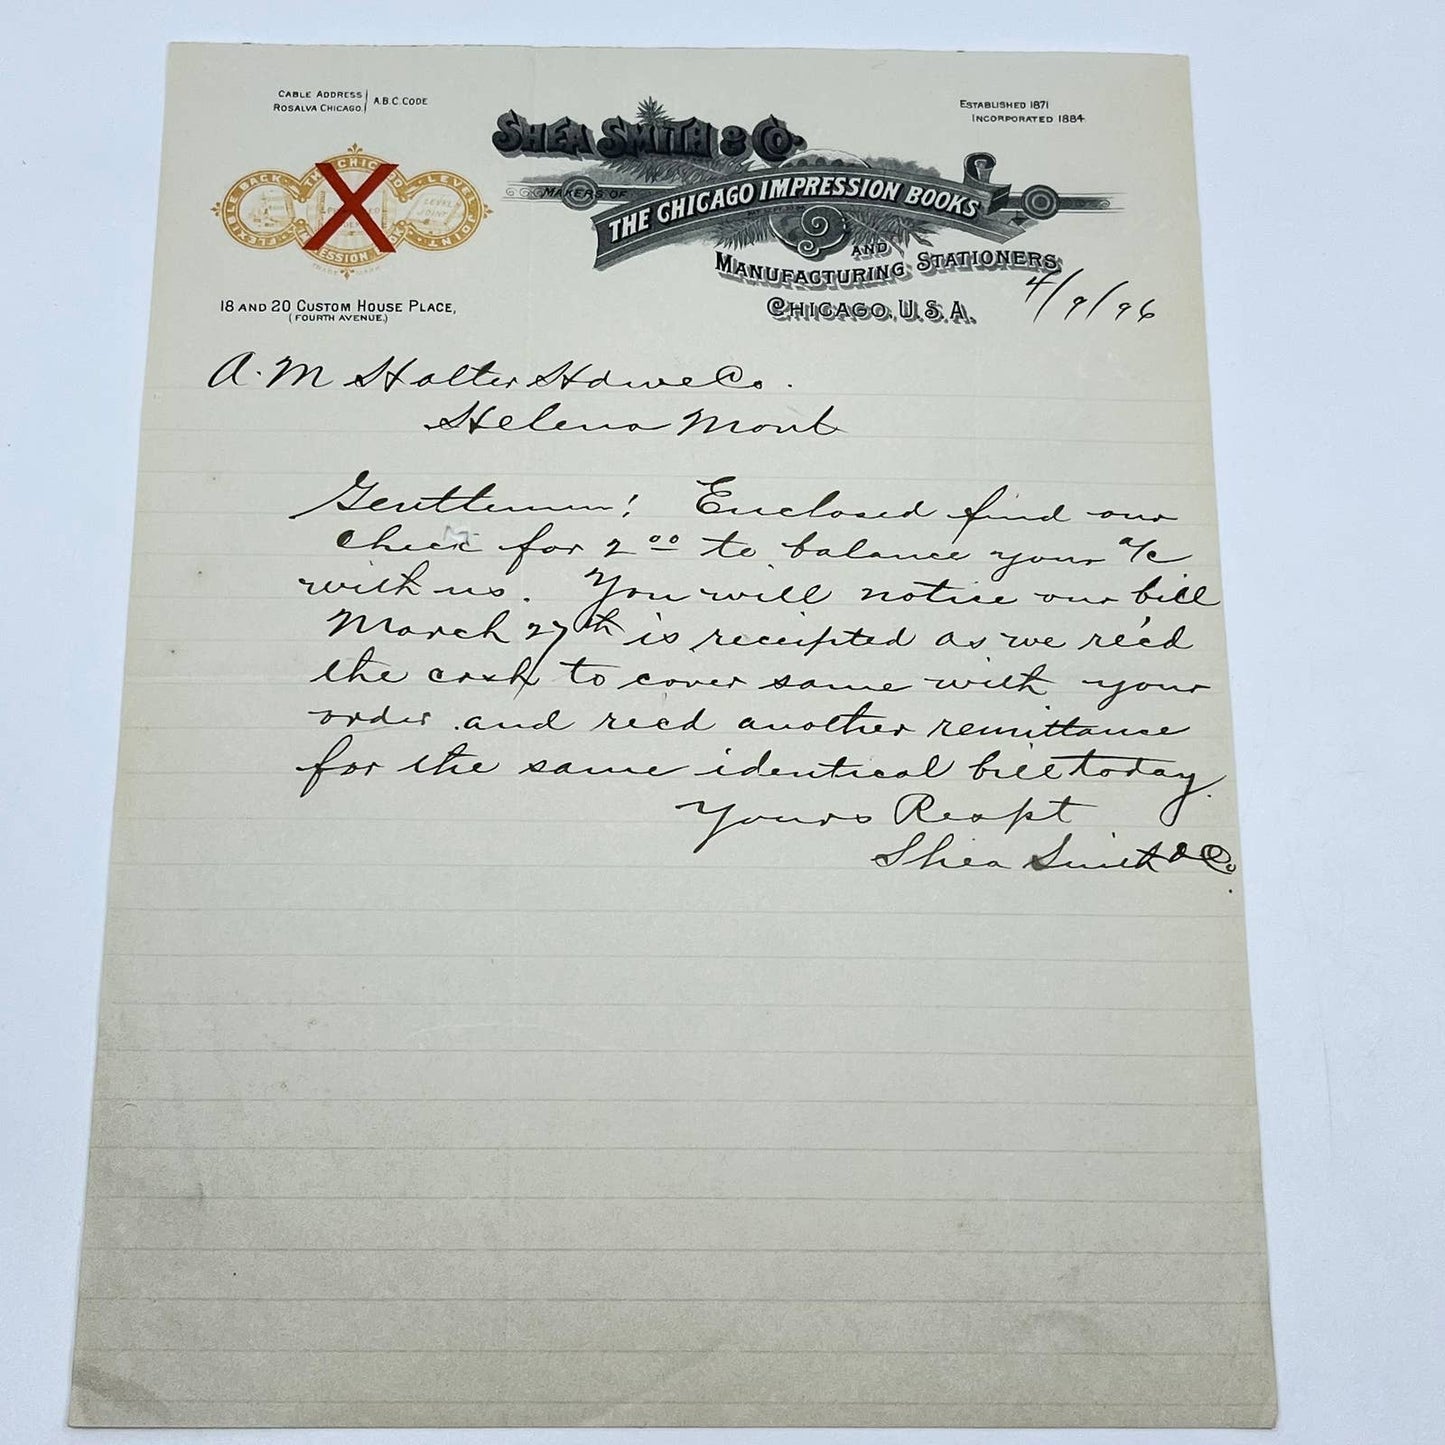 CABLE ADDRESS
ROSALVA CHICAGO.
A.B.C. CODE
ESTABLISHED 1871
INCORPORATED 1884
SHEA SMITH & CO.
MAKERS OF
THE CHICAGO IMPRESSION BOOKS
AND
MANUFACTURING STATIONERS
CHICAGO, U.S.A.
FLEXIBLE BACK
THE CHIC
X
LEVEL JOINT
LEVEL JOINT
ESSION
TRADE MARK
18 AND 20 CUSTOM HOUSE PLACE,
(FOURTH AVENUE.)
4/9/96
A. M Holter Hdwe Co.
Helena Mont
Gentlemen! Enclosed find our
check for 2 00 to balance your a/c
with us. You will notice our bill
March 27th is receipted as we re'c'd
the cash to cover same with your
order and recd another remittance
for the same identical bill today.
Yours Respt
Shea Smith & Co.